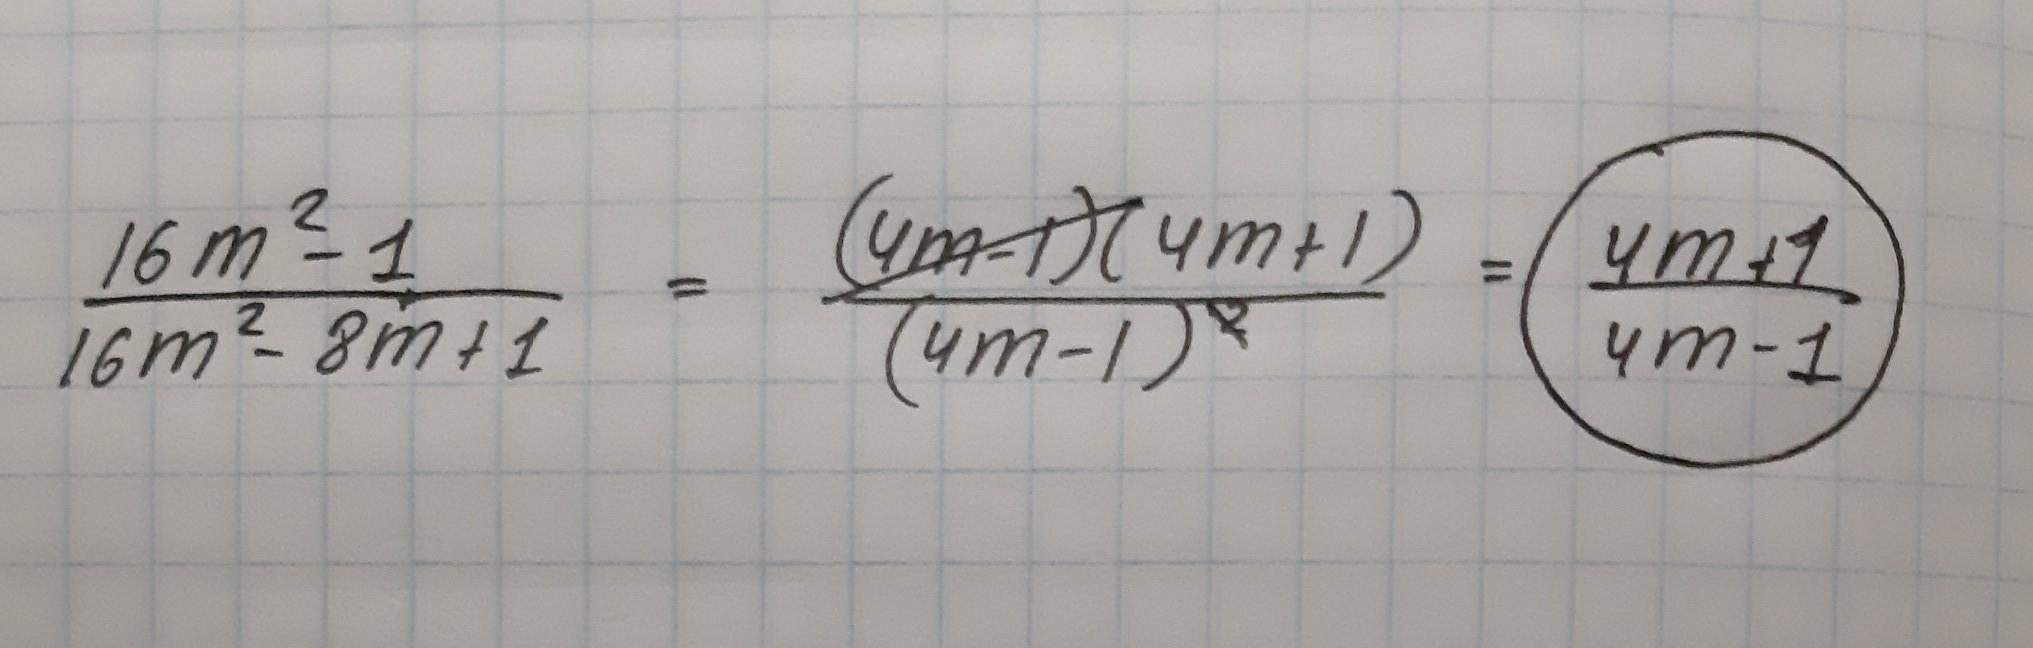 (16m² - 1)/(16m² - 8m + 1) = ((4m-1)(4m+1))/((4m-1)²) = (4m+1)/(4m-1)